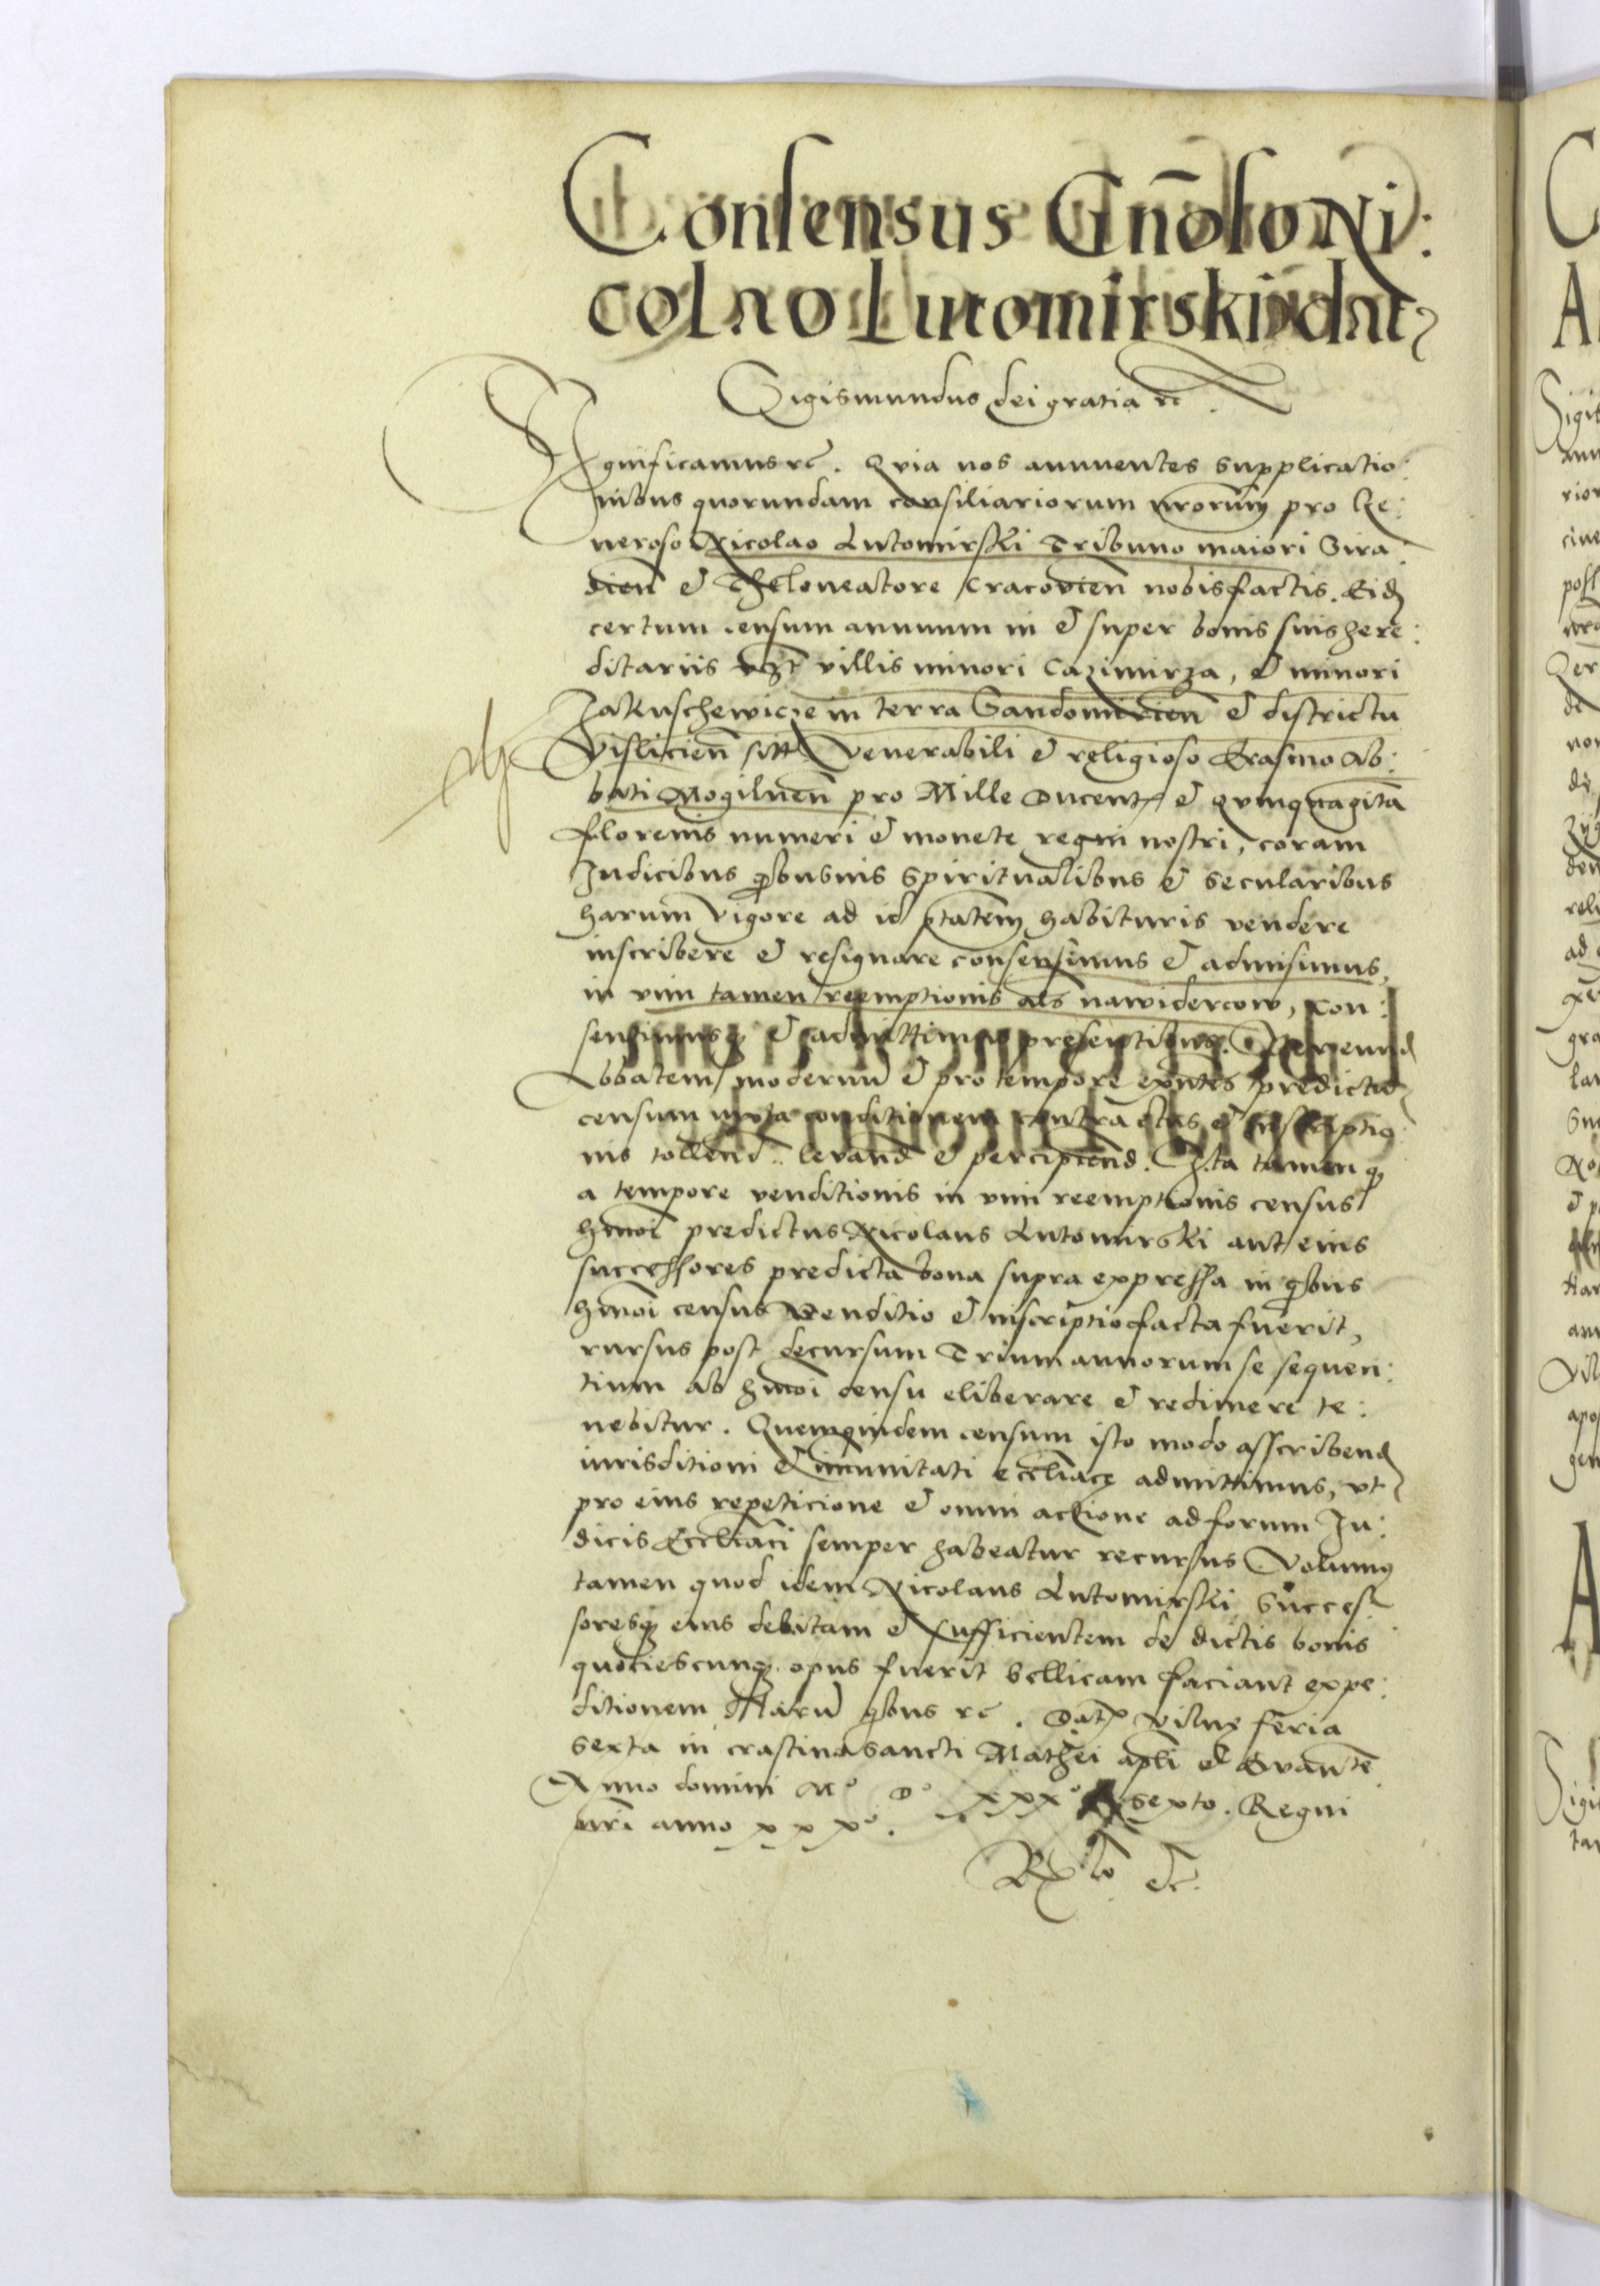 Consensus Gn̄oso Ni:
colao Lutomirski dat
Sigismundus dei gratia rc̄
Significamus rc̄. Quia nos annuentes supplicatio:
nibus quorundam consiliariorum nr̄orum pro Ge:
neroso Nicolao Lutomirski Tribuno maiori Sira
dien̄ et Theloneatore Cracovien̄ nobis factis. Eid
certum censum annuum in et super bonis suis here:
ditariis vzt villis minori Cazimirza, et minori
Jakuschewicze in terra Sandomirien̄ et districtu
Vislicien̄ sitt Venerabili et religioso Erasmo Ab:
bati Mogilnen̄ pro Mille Ducent et quinquagita
florenis numeri et monete regni nostri, coram
Judicibus qbusuis Spiritualibus et secularibus
harum vigore ad id ptatem habituris vendere
inscribere et resignare consensimus et admisimus,
in vim tamen reemptionis als nawiderkow, con:
sentimusq et admittimus presentibus. Per eund
Abbatem modernu et pro tempore exntes predictu
censum iuxta conditionem contractus et inscriptio
nis tollend. levand et percipiend. Ita tamen q
a tempore venditionis in vim reemptionis census
hmoi predictus Nicolaus Lutomirski aut eius
successores predicta bona supra expressa in qbus
hmoi census venditio et inscriptio facta fuerit,
rursus post decursum Trium annorum se sequen:
tium ab hmoi censu eliberare et redimere te:
nebitur. Quemquidem censum isto modo asscribend
iurisditioni et immunitati eccliace admittimus, vt
pro eius repeticione et omni actione ad forum Ju:
dicis Eccliaci semper habeatur recursus Volumus
tamen quod idem Nicolaus Lutomirski Succes
soresq eius debitam et sufficientem de dictis bonis
quotiescunq opus fuerit bellicam faciant expe:
ditionem Haru qbus rc̄. Dat Vilne feria
sexta in crastina sancti Mathei apli et Evante
Anno domini Mº Dº xxxº sexto. Regni
nri anno xxxº.
Rlo etc.